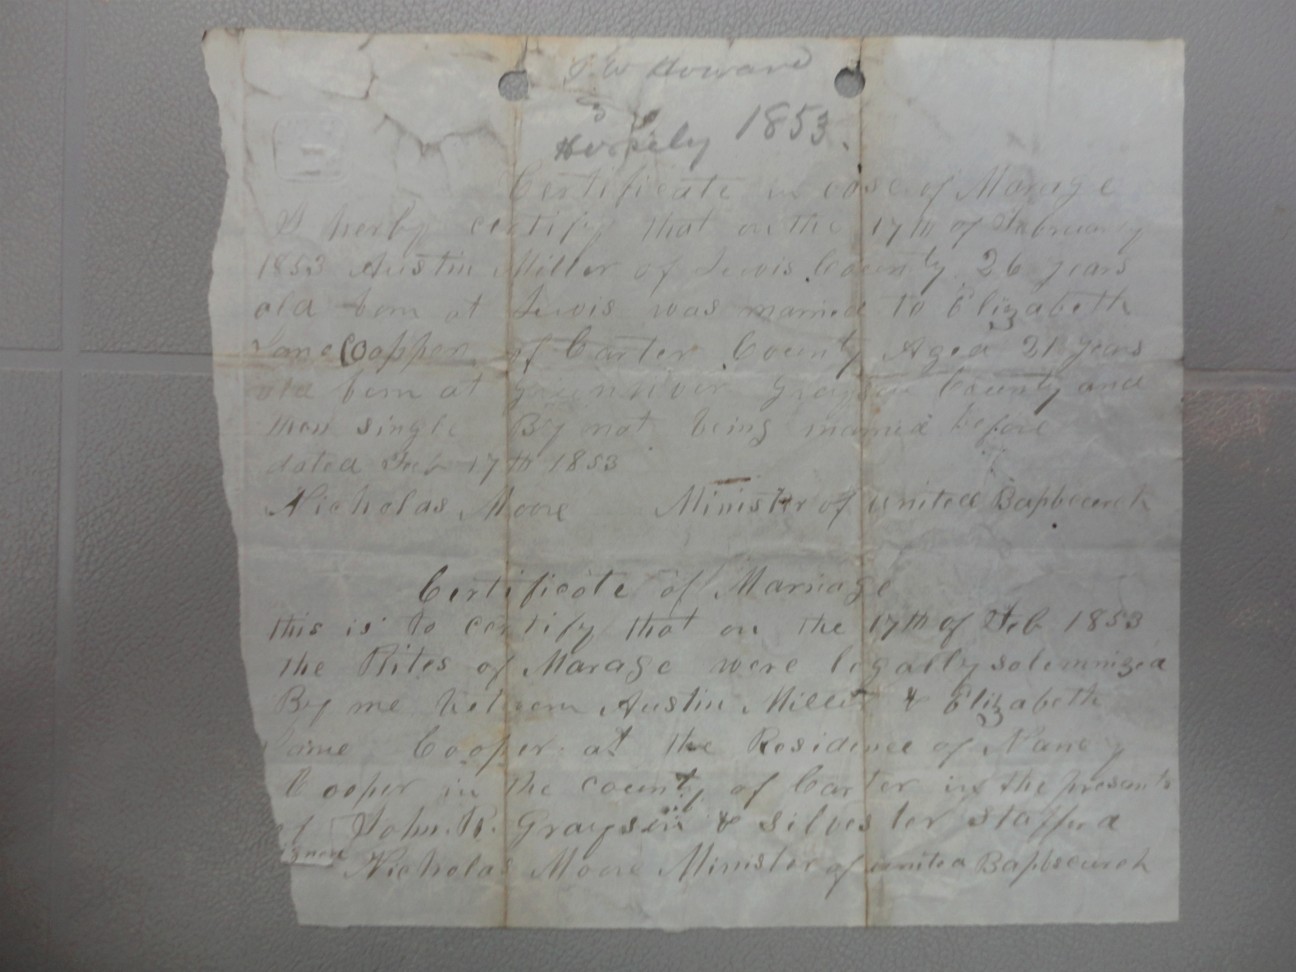 J. W. Howard
1853.
Certificate in case of Marage
I herby certify that on the 17th of February
1853 Austin Miller of Lewis County 26 years
old born at Lewis was married to Elizabeth
Jane Copper of Carter County Aged 21 years
old born at Grayson County and
than single By not being married before
dated Feb 17th 1853
Nicholas Moore Minister of united Bapbscurch
Certificate of Marriage
this is to certify that on the 17th of Feb 1853
the Rites of Marage were legally solemnized
By me between Austin Miller & Elizabeth
Jane Cooper at the Residence of Nancy
Cooper in the county of Carter in the presents
of John R. Grayson & Silvester Stafford
signed Nicholas Moore Minister of united Bapbscurch